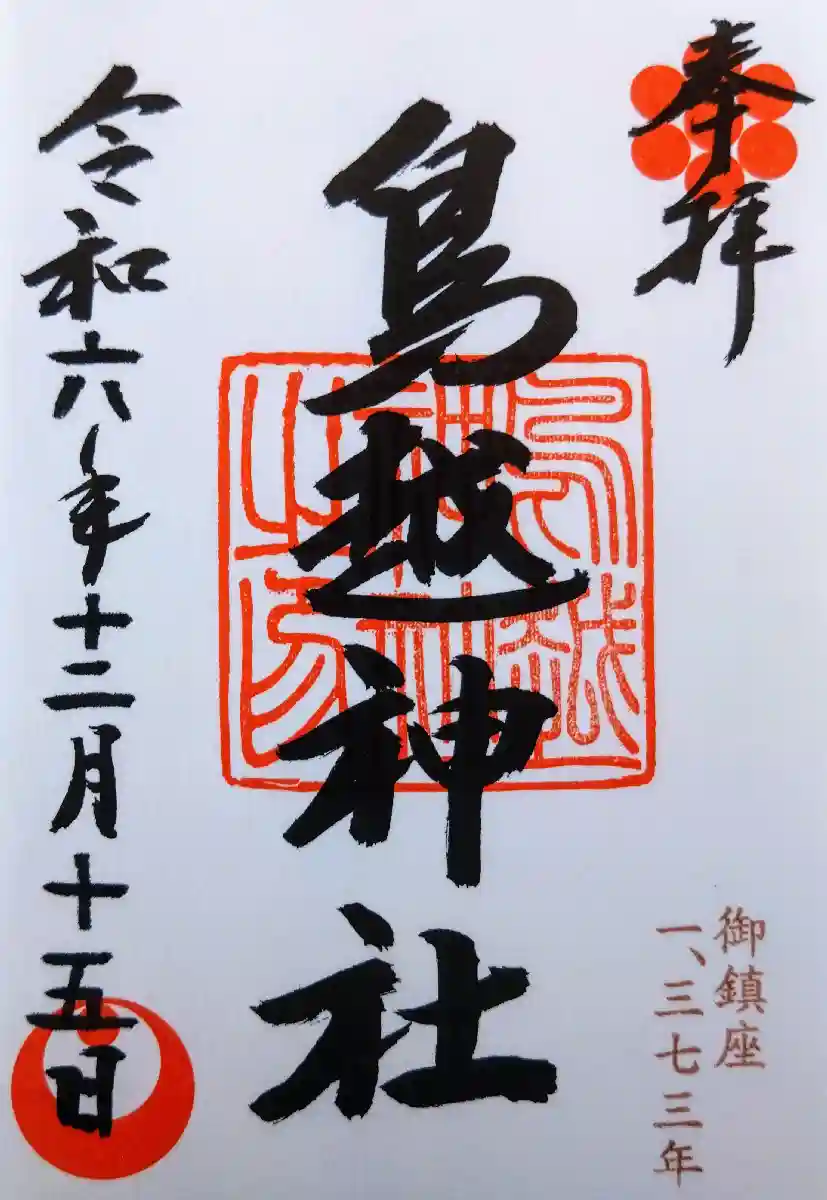 奉拝
鳥越神社
鳥越神社之印
令和六年十二月十五日
御鎮座
一、三七三年